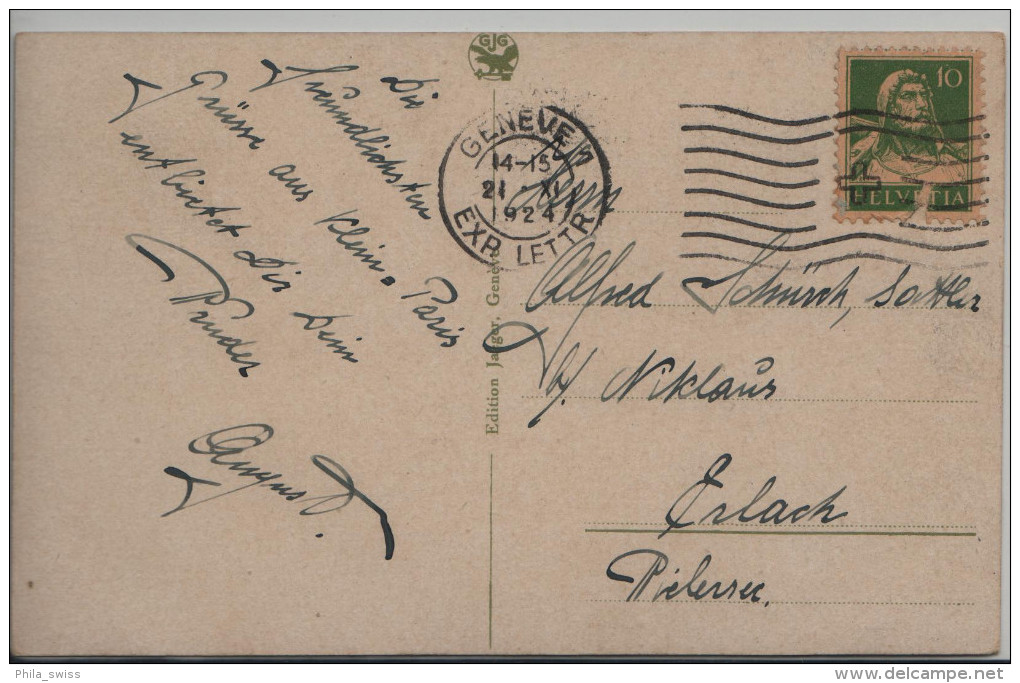 Die
freundlichsten
Grüsse aus Klein-Paris
entbietet Dir Dein
Bruder
August.
GJG
Edition Jaeger, Genève
GENEVE 1
14-15
21 XI
1924
EXP. LETTR.
10
HELVETIA
Herrn
Alfred Schürch, Sattler
b/. Niklaus
Erlach
Bielersee.
Phila_swiss
delcampe.net